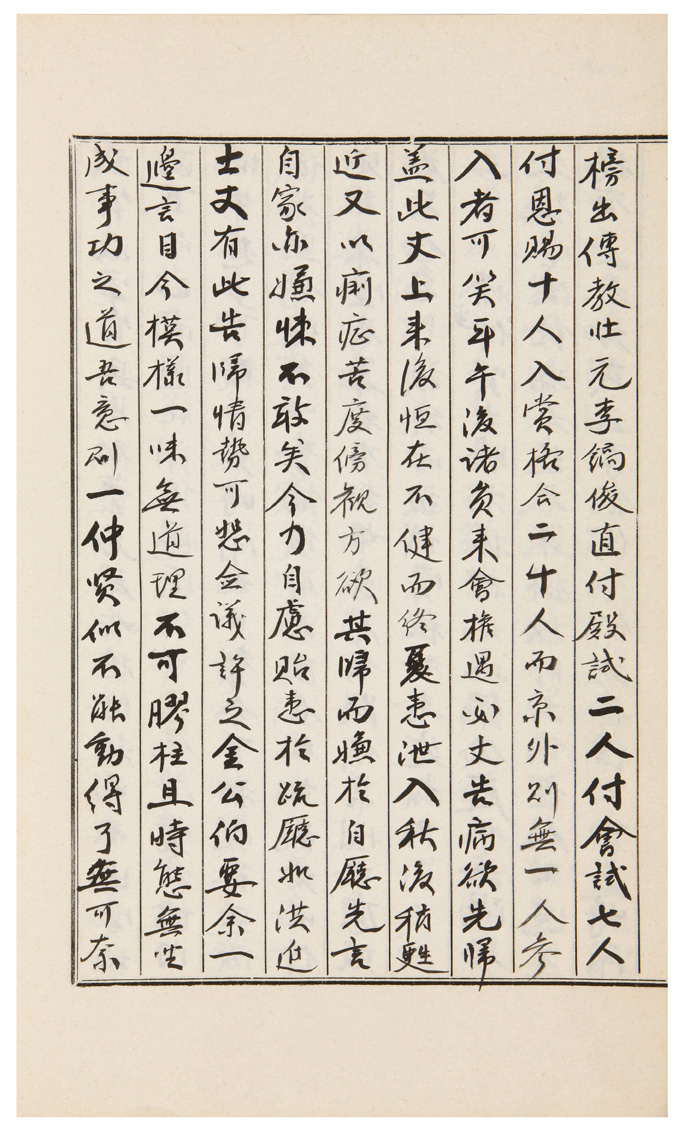 榜出傳教壯元李鎬俊直付殿試二人付會試七人
付恩賜十人入賞格合二十人而京外別無一人參
入者可笑耳午後諸員來會權遇必丈告病欲先歸
盖此丈上來後恒在不健而終夏患泄入秋後稍甦
近又以痢症苦度傍觀方欲共歸而嫌於自廳先言
自家亦嫌悚不敢矣今力自慮貽患於疏廳如洪近
士丈有此告歸情勢可恕僉議許之金公伯要余一
邊言目今模樣一味無道理不可膠柱且時態無坐
成事功之道吾意則一仲賢似不能動得了無可奈